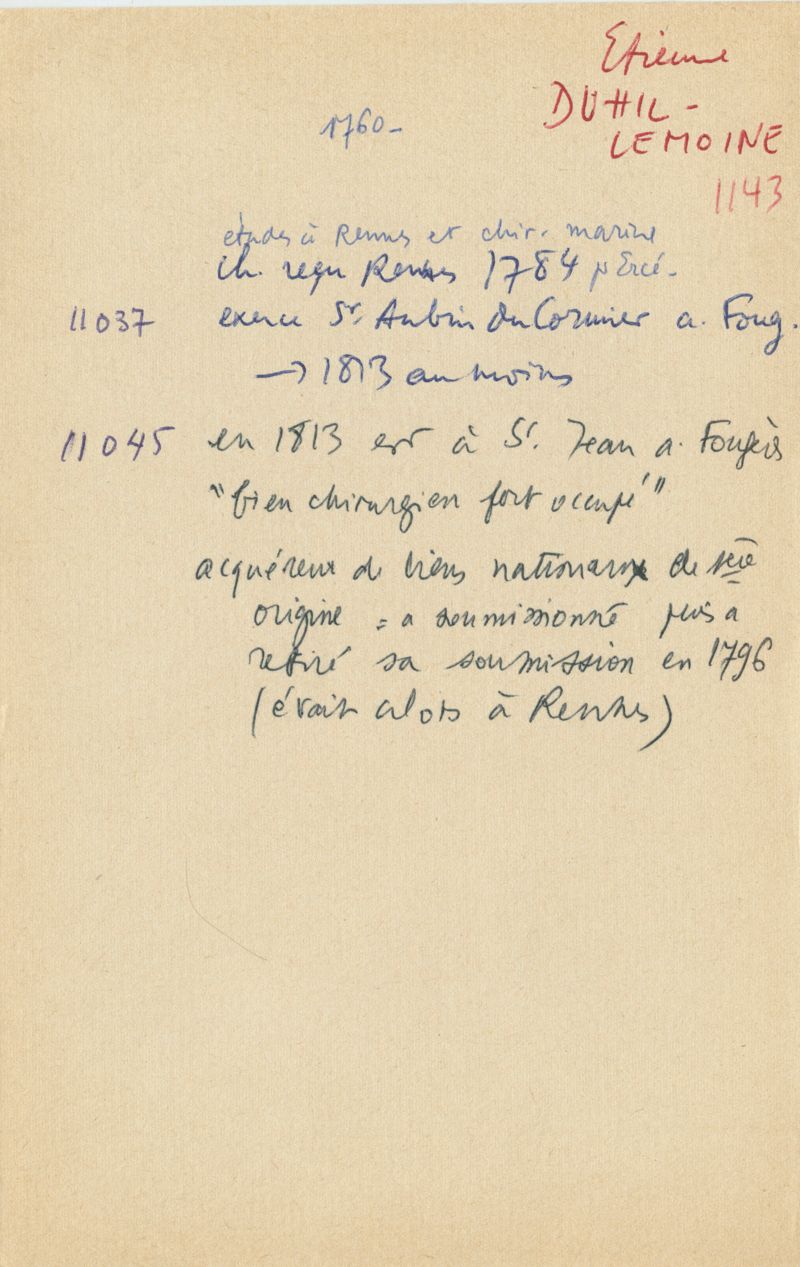 Etienne
DUHIL-
LEMOINE
1143
1760-
études à Rennes et chir. marine
ch. reçu Rennes 1784 pr Ercé-
11037 exerce St. Aubin du Cormier a. Foug.
→ 1813 au moins
11045 en 1813 est à St. Jean a. Fougères
"bien chirurgien fort occupé"
acquéreur de biens nationaux de
origine = a soumissionné puis a
retiré sa soumission en 1796
(était alors à Rennes)